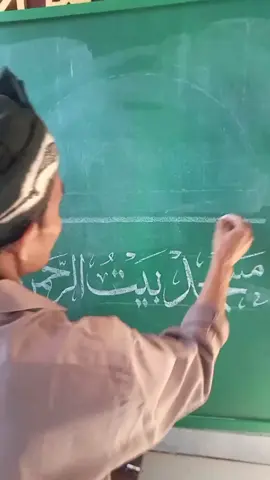 مسجد بَيْتُ الرَّحْمٰن